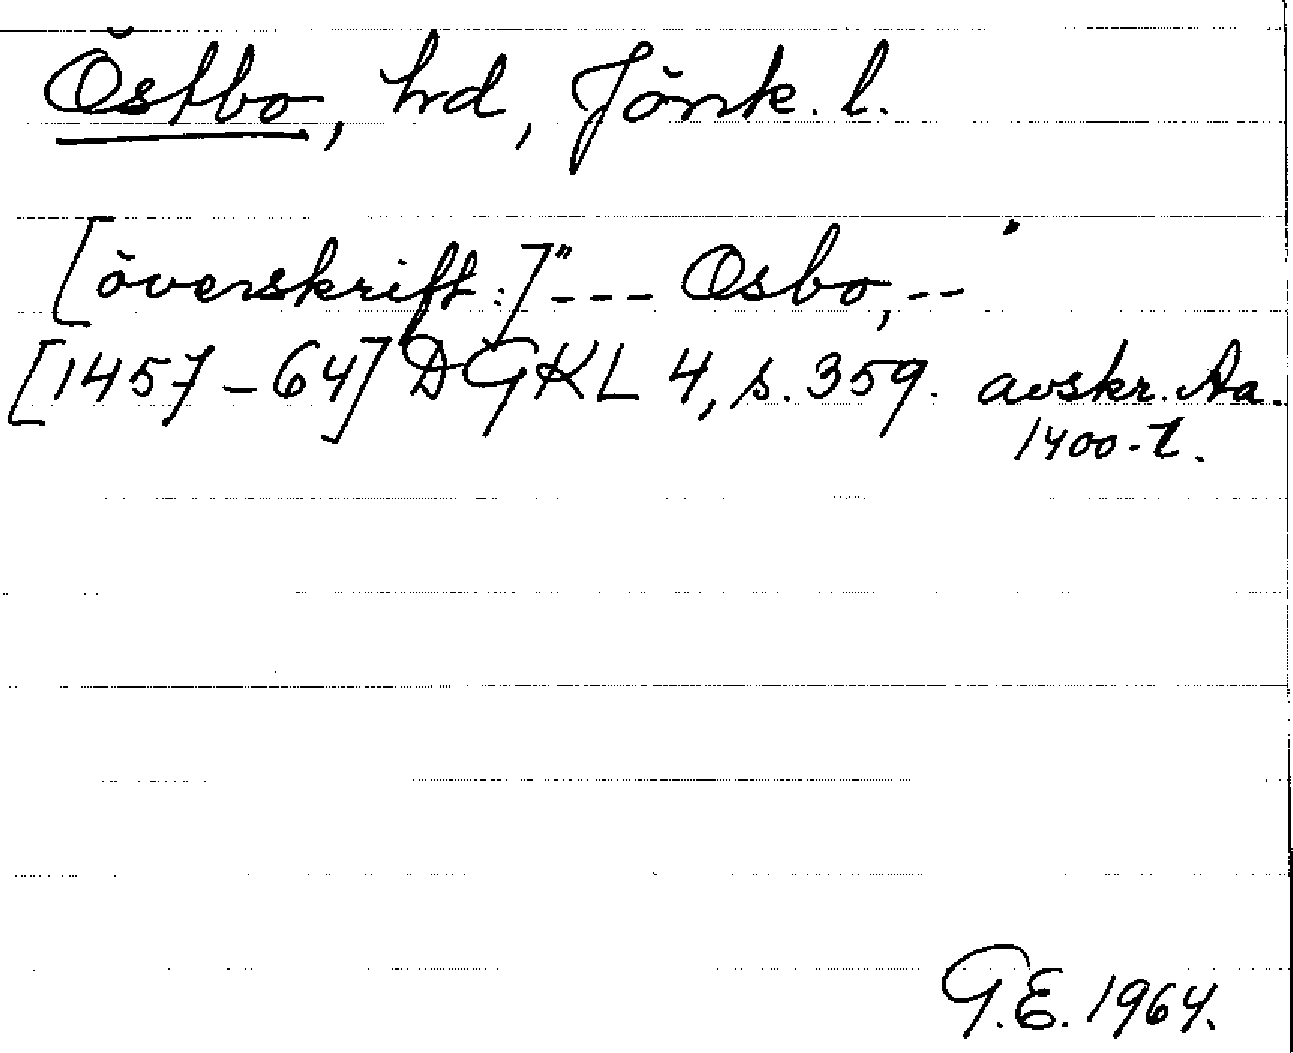 Östbo, hd, Jönk. l.
[överskrift:] "--- Osbo, --"
[1457-64] DGKL 4, s. 359. avskr. Aa.
1400-t.
G.E. 1964.